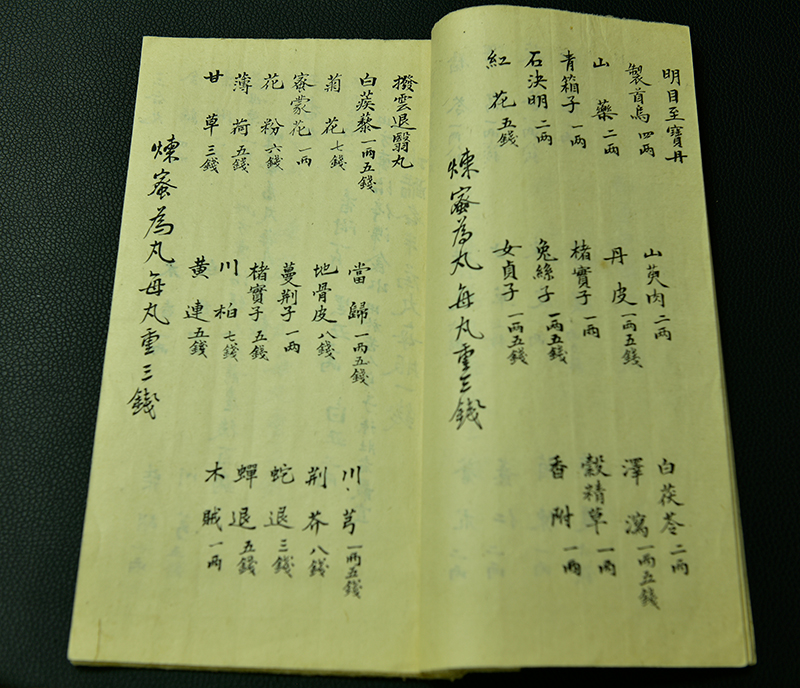 明目至寶丹
製首烏四両 山萸肉二両 白茯苓二両
山藥二両 丹皮一両五錢 澤瀉一両五錢
青箱子一両 楮實子一両 穀精草一両
石決明二両 兔絲子一両五錢 香附一両
紅花五錢 女貞子一両五錢
煉蜜為丸每丸重三錢
撥雲退翳丸
白蒺藜一両五錢 當歸一両五錢 川芎一両五錢
菊花七錢 地骨皮八錢 荆芥八錢
蜜蒙花一両 蔓荆子一両 蛇退三錢
花粉六錢 楮實子五錢 蟬退五錢
薄荷五錢 川柏七錢 木賊一両
甘草三錢 黃連五錢
煉蜜為丸每丸重三錢